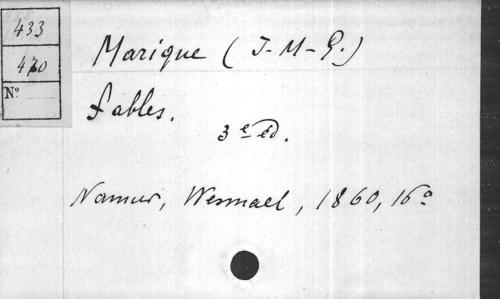 433
470
N°
Marique (J-M-G.)
Fables.
3e éd.
Namur, Wesmael, 1860, 16°